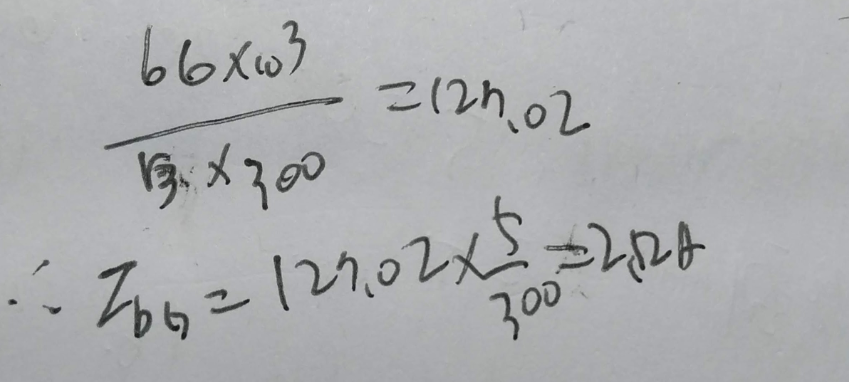 66×10³ / √3 × 300 = 127.02
∴ I66 = 127.02 × 5/300 = 2.12A